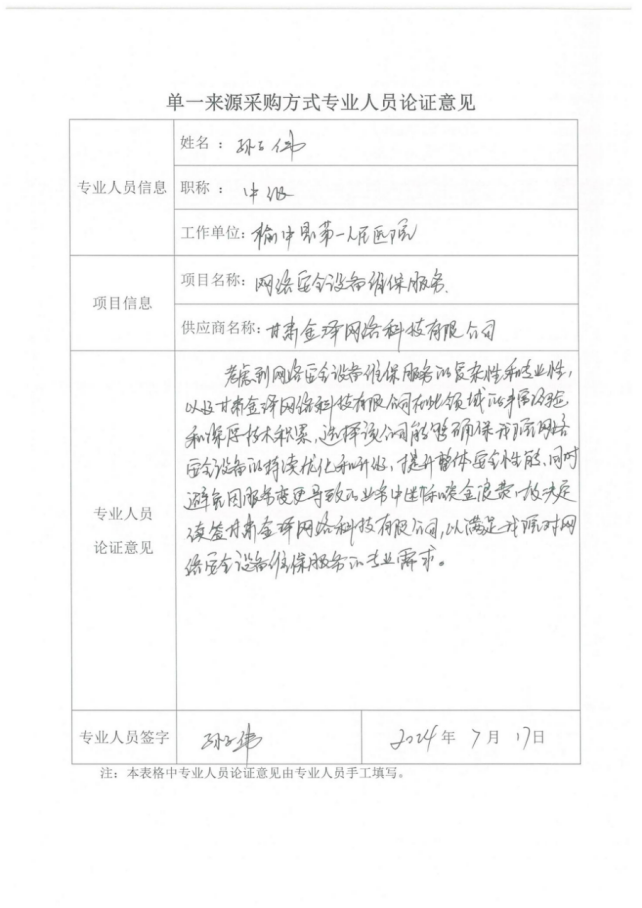 单一来源采购方式专业人员论证意见
专业人员信息
姓名：孙子伟
职称：中级
工作单位:榆中县第一人民医院
项目信息
项目名称:网络安全设备维保服务
供应商名称:甘肃金泽网络科技有限公司
专业人员
论证意见
考虑到网络安全设备维保服务的复杂性和专业性，
以及甘肃金泽网络科技有限公司在此领域的丰富经验
和深厚技术积累，选择该公司能够确保我院网络
安全设备的持续优化和升级，提升整体安全性能，同时
避免因服务变更导致的业务中断和资金浪费，故决定
续签甘肃金泽网络科技有限公司，以满足我院对网
络安全设备维保服务的专业需求。
专业人员签字
孙子伟
2024年7月17日
注：本表格中专业人员论证意见由专业人员手工填写。